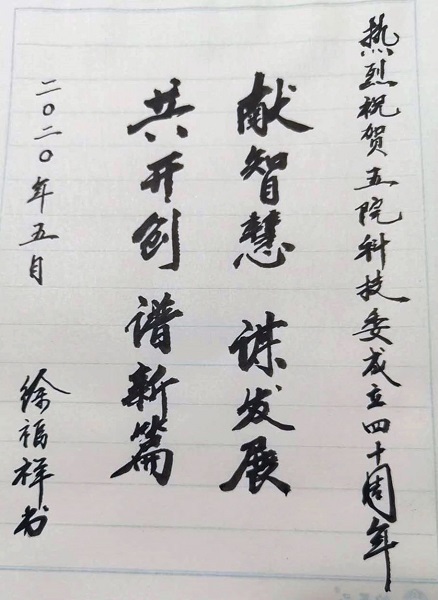 热烈祝贺五院科技委成立四十周年
献智慧 谋发展
共开创 谱新篇
二〇二〇年五月
徐福祥书